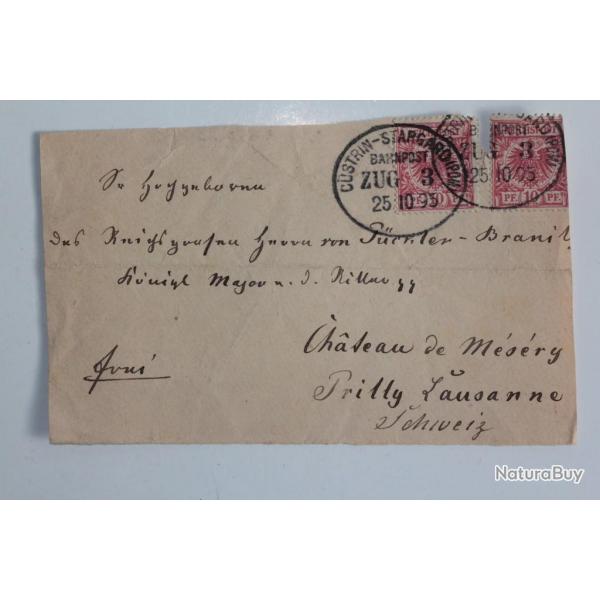 CÜSTRIN-STARGARD (POM)
BAHNPOST
ZUG 3
25 10 95
BAHNPOST
ZUG 3
25 10 95
REICHSPOST
PF 10 PF
Sr Hochgeboren
des Reichsgrafen Herrn von Pückler-Branitz
Königl Major a. d. Ritter pp
frei
Château de Méséry
Prilly Lausanne
Schweiz
NaturaBuy